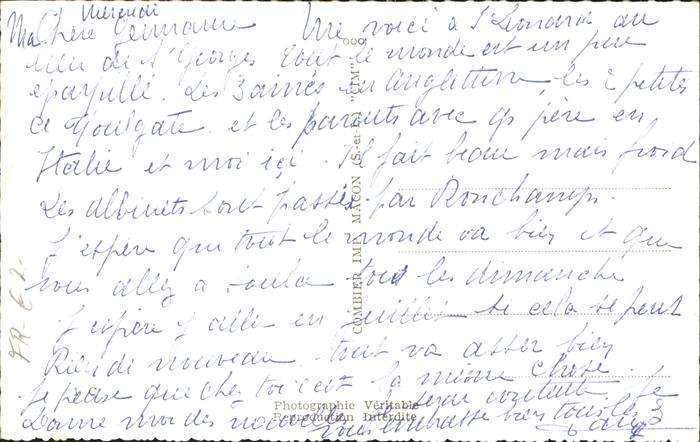 Mercredi
Ma Chère Germaine Me voici à St Léonard au
lieu de St Georges tout le monde est un peu
éparpillé. Les 3 ainés en Angleterre, les 2 petites
et les parents avec père en
Italie et moi ici. Il fait beau mais froid
Les sont passés par Ronchamps.
J'espère que tout le monde va bien et que
vous allez à tous les dimanche
J'espère y aller en juillet si cela se peut
Rien de nouveau tout va assez bien
je pense que chez toi c'est la même chose.
Donne moi des nouvelles Je
vous embrasse bien tous les 3
FR-E2-
COMBIER IMP. MACON (S.-et-L.) "CIM"
Photographie Véritable
Reproduction Interdite